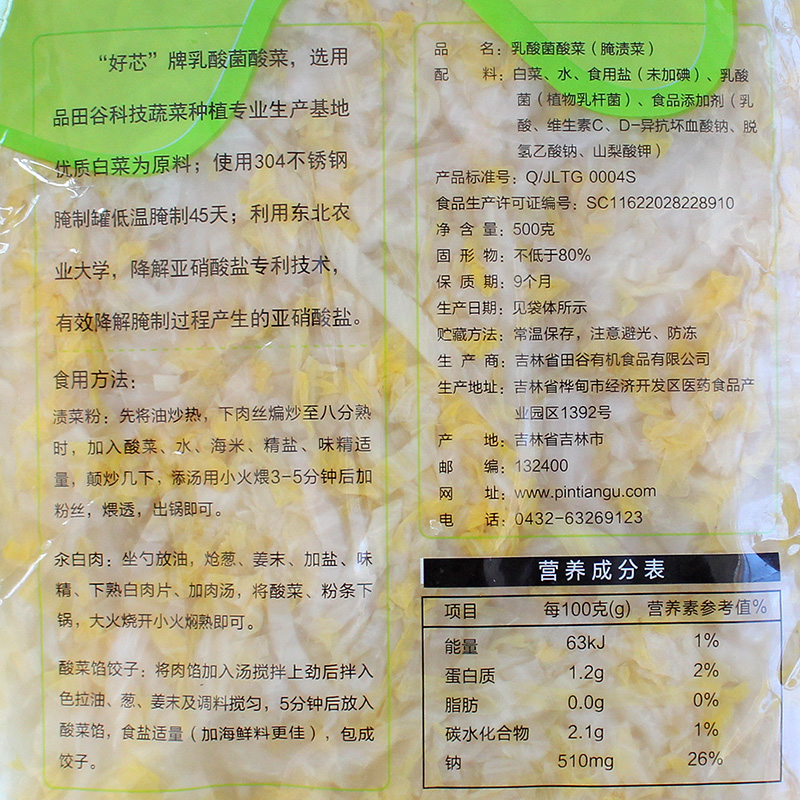 “好芯”牌乳酸菌酸菜，选用
品田谷科技蔬菜种植专业生产基地
优质白菜为原料；使用304不锈钢
腌制罐低温腌制45天；利用东北农
业大学，降解亚硝酸盐专利技术，
有效降解腌制过程产生的亚硝酸盐。
食用方法：
渍菜粉：先将油炒热，下肉丝煸炒至八分熟
时，加入酸菜、水、海米、精盐、味精适
量，颠炒几下，添汤用小火煨3-5分钟后加
粉丝，煨透，出锅即可。
汆白肉：坐勺放油，炝葱、姜末、加盐、味
精、下熟白肉片、加肉汤，将酸菜、粉条下
锅，大火烧开小火焖熟即可。
酸菜馅饺子：将肉馅加入汤搅拌上劲后拌入
色拉油、葱、姜末及调料搅匀，5分钟后放入
酸菜馅，食盐适量（加海鲜料更佳），包成
饺子。
品 名：乳酸菌酸菜（腌渍菜）
配 料：白菜、水、食用盐（未加碘）、乳酸
菌（植物乳杆菌）、食品添加剂（乳
酸、维生素C、D-异抗坏血酸钠、脱
氢乙酸钠、山梨酸钾）
产品标准号：Q/JLTG 0004S
食品生产许可证编号：SC11622028228910
净 含 量：500克
固 形 物：不低于80%
保 质 期：9个月
生产日期：见袋体所示
贮藏方法：常温保存，注意避光、防冻
生 产 商：吉林省田谷有机食品有限公司
生产地址：吉林省桦甸市经济开发区医药食品产
业园区1392号
产 地：吉林省吉林市
邮 编：132400
网 址：www.pintiangu.com
电 话：0432-63269123
营养成分表
项目 每100克(g) 营养素参考值%
能量 63kJ 1%
蛋白质 1.2g 2%
脂肪 0.0g 0%
碳水化合物 2.1g 1%
钠 510mg 26%